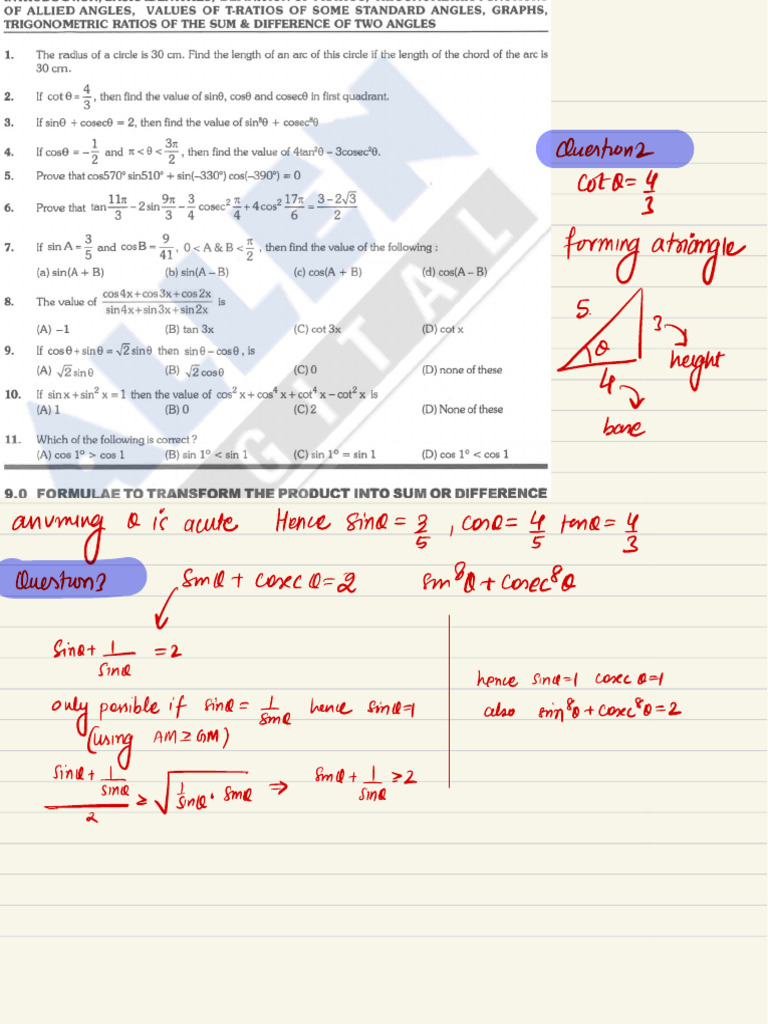 OF ALLIED ANGLES, VALUES OF T-RATIOS OF SOME STANDARD ANGLES, GRAPHS,
TRIGONOMETRIC RATIOS OF THE SUM & DIFFERENCE OF TWO ANGLES
1. The radius of a circle is 30 cm. Find the length of an arc of this circle if the length of the chord of the arc is
30 cm.
2. If cot θ = 4/3, then find the value of sinθ, cosθ and cosecθ in first quadrant.
3. If sinθ + cosecθ = 2, then find the value of sin⁸θ + cosec⁸θ
4. If cosθ = –1/2 and π < θ < 3π/2, then find the value of 4tan²θ – 3cosec²θ.
5. Prove that cos570° sin510° + sin(–330°) cos(–390°) = 0
6. Prove that tan 11π/3 – 2 sin 9π/3 – 3/4 cosec² π/4 + 4 cos² 17π/6 = (3 – 2√3)/2
7. If sin A = 3/5 and cos B = 9/41, 0 < A & B < π/2, then find the value of the following :
(a) sin(A + B) (b) sin(A – B) (c) cos(A + B) (d) cos(A – B)
8. The value of (cos 4x + cos 3x + cos 2x)/(sin 4x + sin 3x + sin 2x) is
(A) –1 (B) tan 3x (C) cot 3x (D) cot x
9. If cosθ + sinθ = √2 sinθ then sinθ – cosθ, is
(A) √2 sinθ (B) √2 cosθ (C) 0 (D) none of these
10. If sin x + sin² x = 1 then the value of cos² x + cos⁴ x + cot⁴ x – cot² x is
(A) 1 (B) 0 (C) 2 (D) None of these
11. Which of the following is correct ?
(A) cos 1° > cos 1 (B) sin 1° < sin 1 (C) sin 1° = sin 1 (D) cos 1° < cos 1
9.0 FORMULAE TO TRANSFORM THE PRODUCT INTO SUM OR DIFFERENCE
ALLEN
DIGITAL
Question 2
cot θ = 4/3
forming a triangle
5
3
θ
height
4
base
assuming θ is acute Hence sinθ = 3/5, cosθ = 4/5 tanθ = 4/3
Question 3
sinθ + cosec θ = 2 sin⁸θ + cosec⁸θ
sinθ + 1/sinθ = 2
only possible if sinθ = 1/sinθ hence sinθ = 1
(using AM ≥ GM)
(sinθ + 1/sinθ)/2 ≥ √(1/sinθ · sinθ) ⇒ sinθ + 1/sinθ ≥ 2
hence sinθ = 1 cosec θ = 1
also sin⁸θ + cosec⁸θ = 2